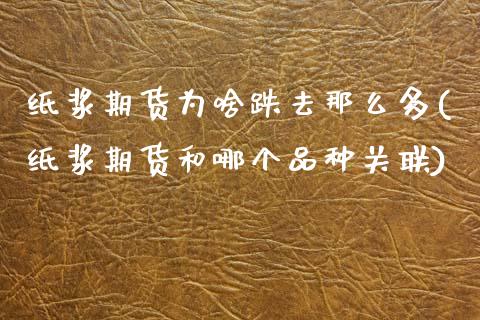 纸浆期货为啥跌去那么多(
纸浆期货和哪个品种关联)